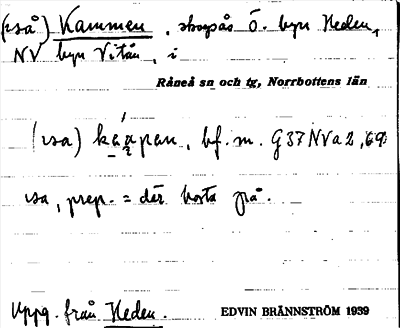 (på) Kammen, skogsås Ö. byn Heden,
NV byn Vitån, i
Råneå sn och tg, Norrbottens län
bf. m. G37NVa2, 69
prep. = där borta på.
Uppg. från Heden.
EDVIN BRÄNNSTRÖM 1939